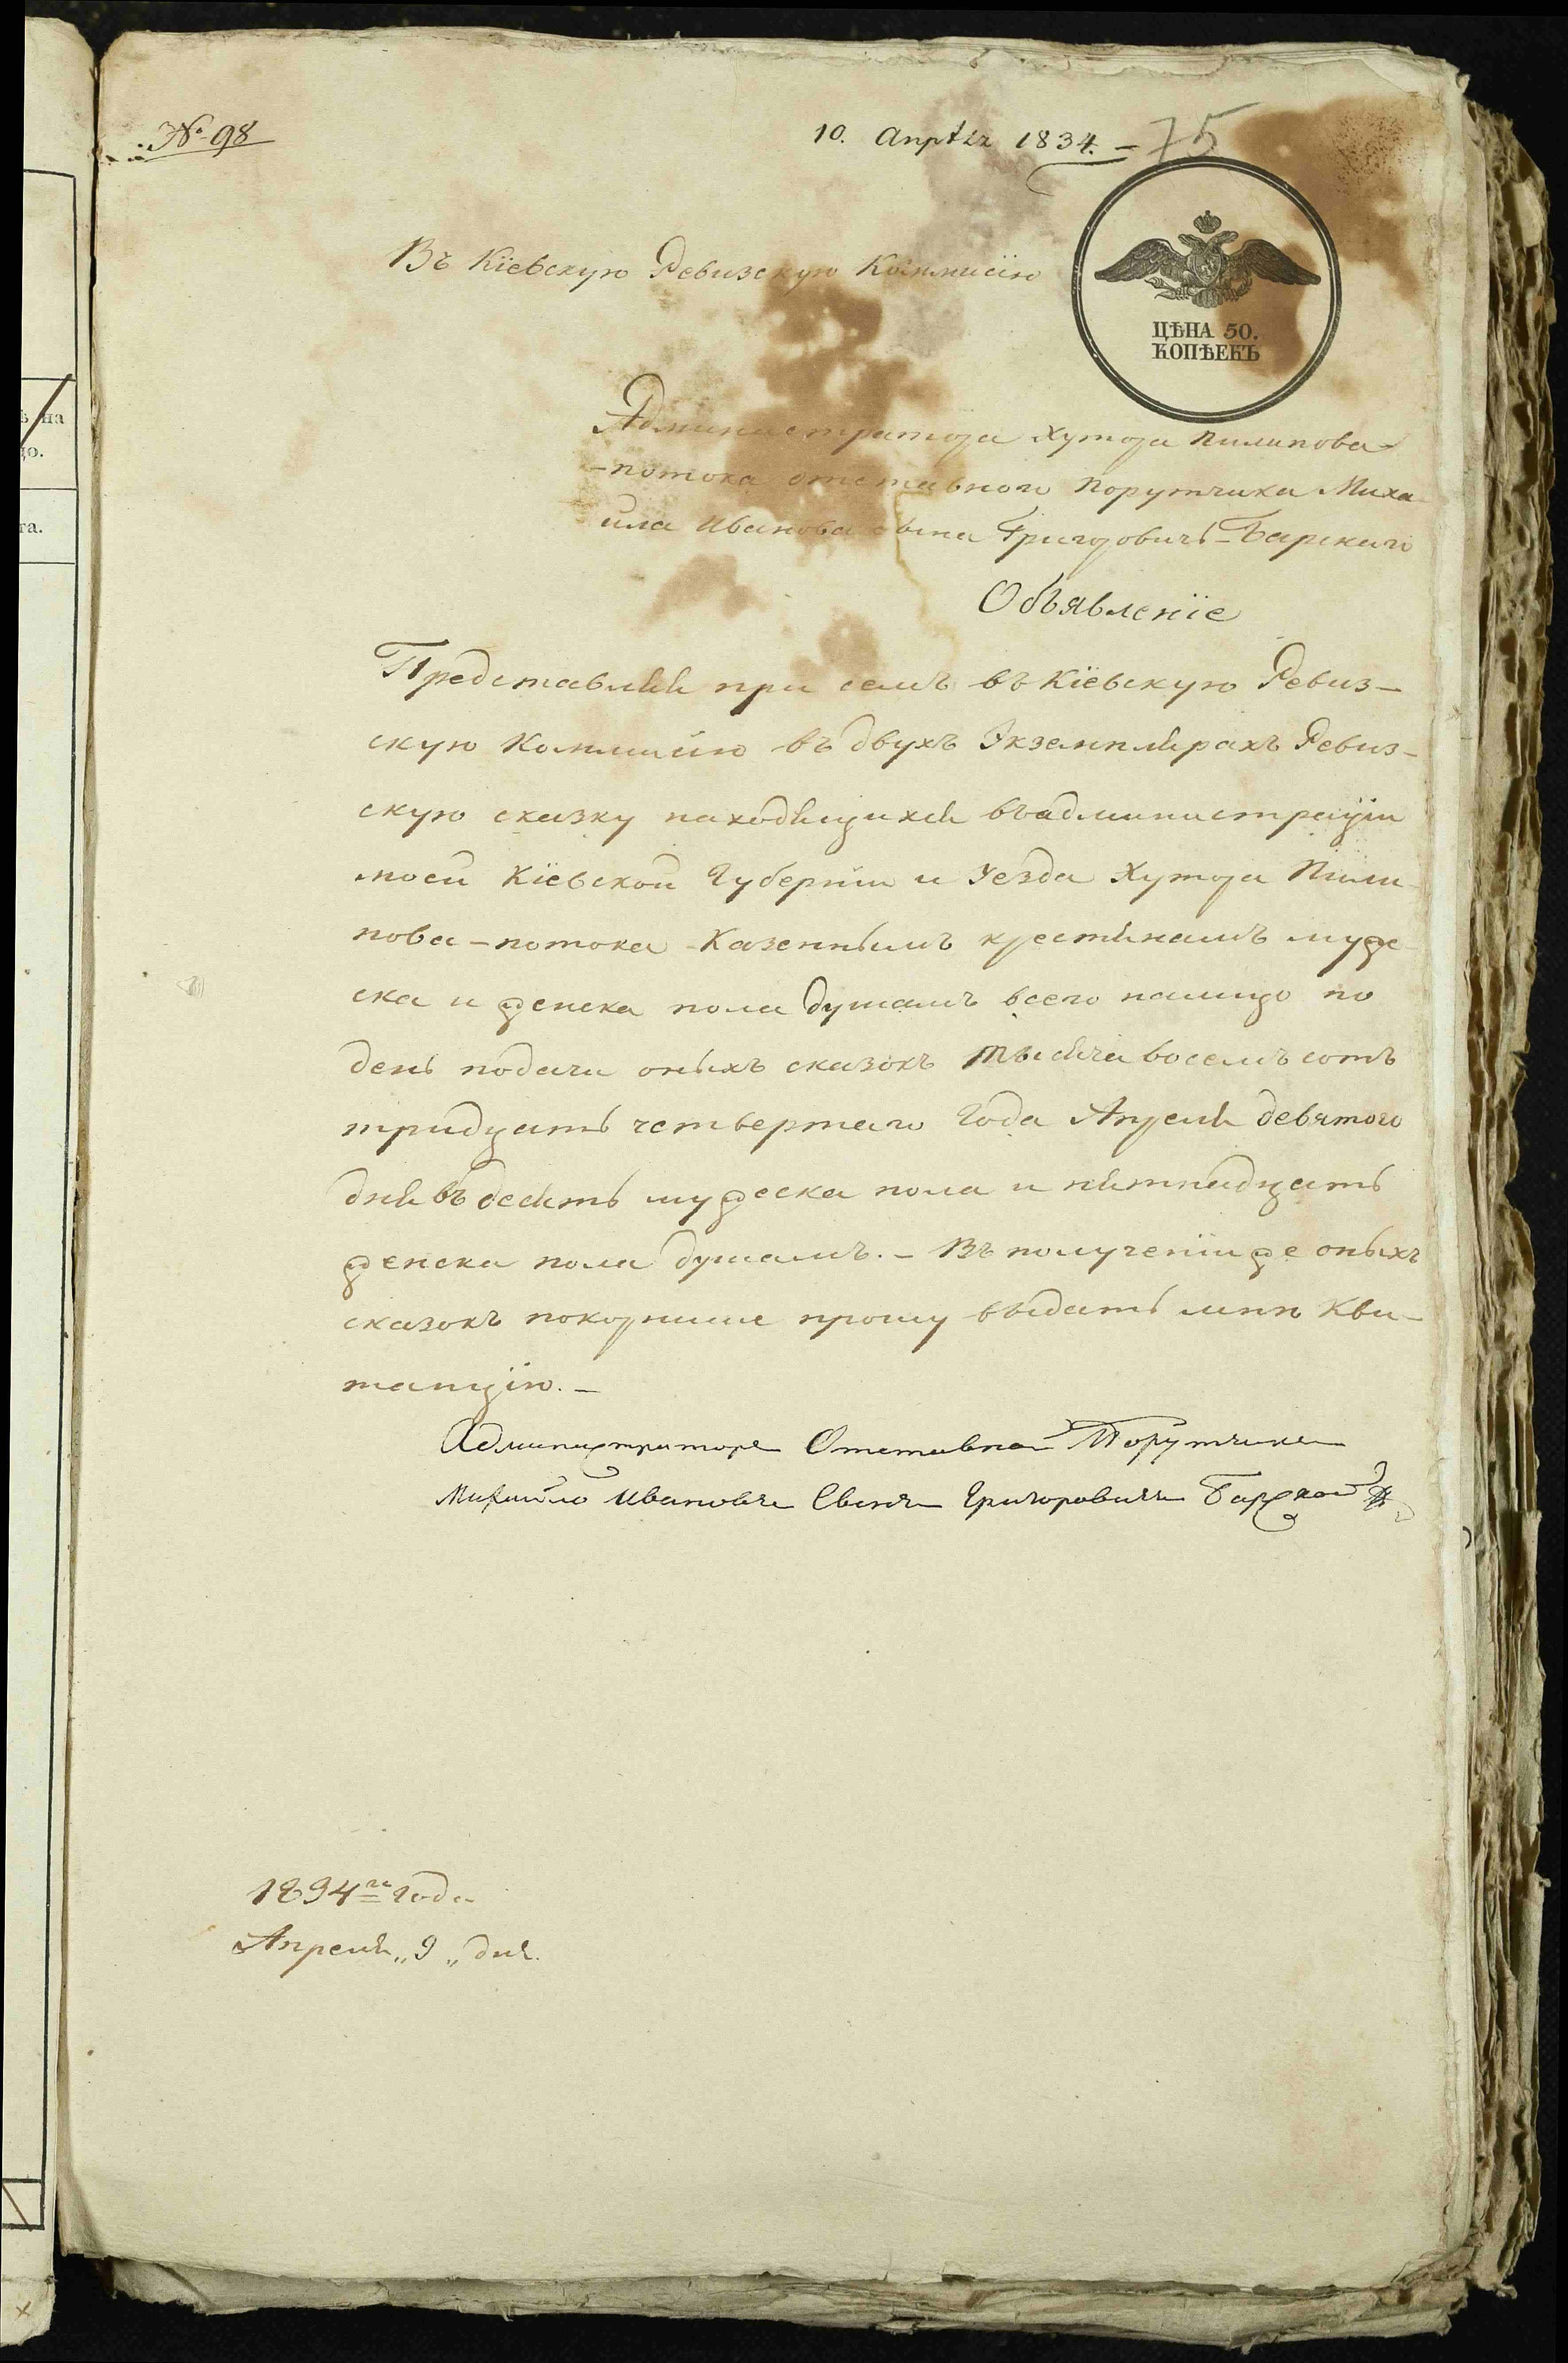 № 98
10. Апрѣля 1834. – 75
Въ Кіевскую Ревизскую Коммисію
ЦѢНА 50.
КОПѢЕКЪ
Администратора Хутора Пилипова
-потока отставного Порутчика Миха-
ила Иванова сына Григоровичъ-Барскаго
Объявленіе
Представляя при семъ въ Кіевскую Ревиз-
скую Коммисію въ двухъ Экземплярахъ Ревиз-
скую сказку находящихся въ администраціи
моей Кіевской Губерніи и Уезда Хутора Пили-
пова-потока Казеннымъ крестянамъ муже-
ска и женска пола душамъ всего налицо по
день подачи оныхъ сказокъ тысяча восемъ сотъ
тридцать четвертаго Года Апреля девятого
дня въ десять мужеска пола и пятнадцать
женска пола душамъ. – Въ полученіи же оныхъ
сказокъ покорнише прошу выдать мнѣ Кви-
танцію. –
Администраторъ Отставной Порутчикъ
Михайло Ивановъ Сынъ Григоровичъ Барской
1834го года
Апреля „9„ дня.
ѣ на
цо.
та.